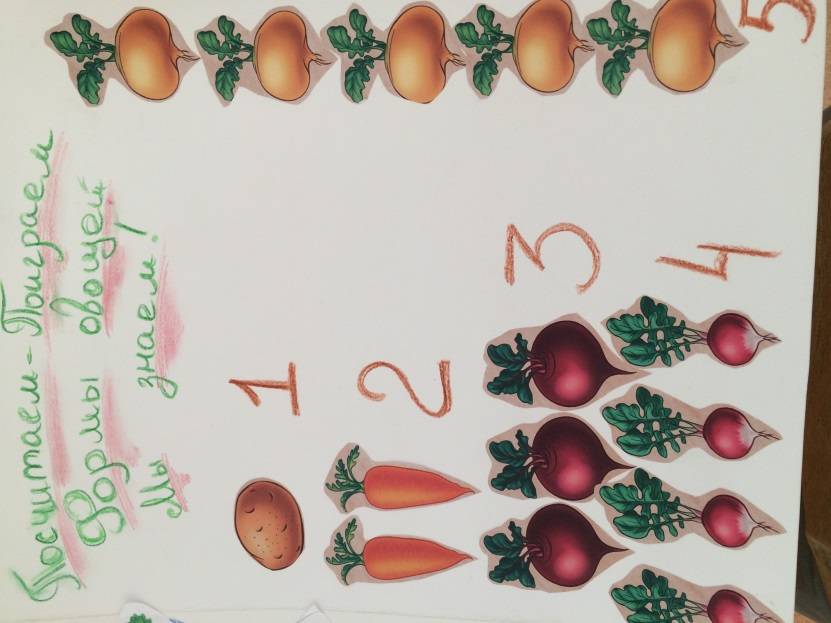 Посчитаем-Поиграем
Формы овощей
Мы знаем!
1
2
3
4
5